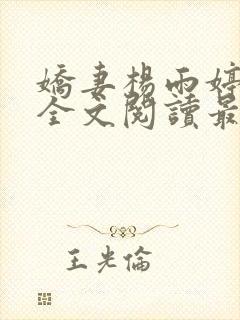 嬌妻楊雨婷
全文閱讀最
王光倫